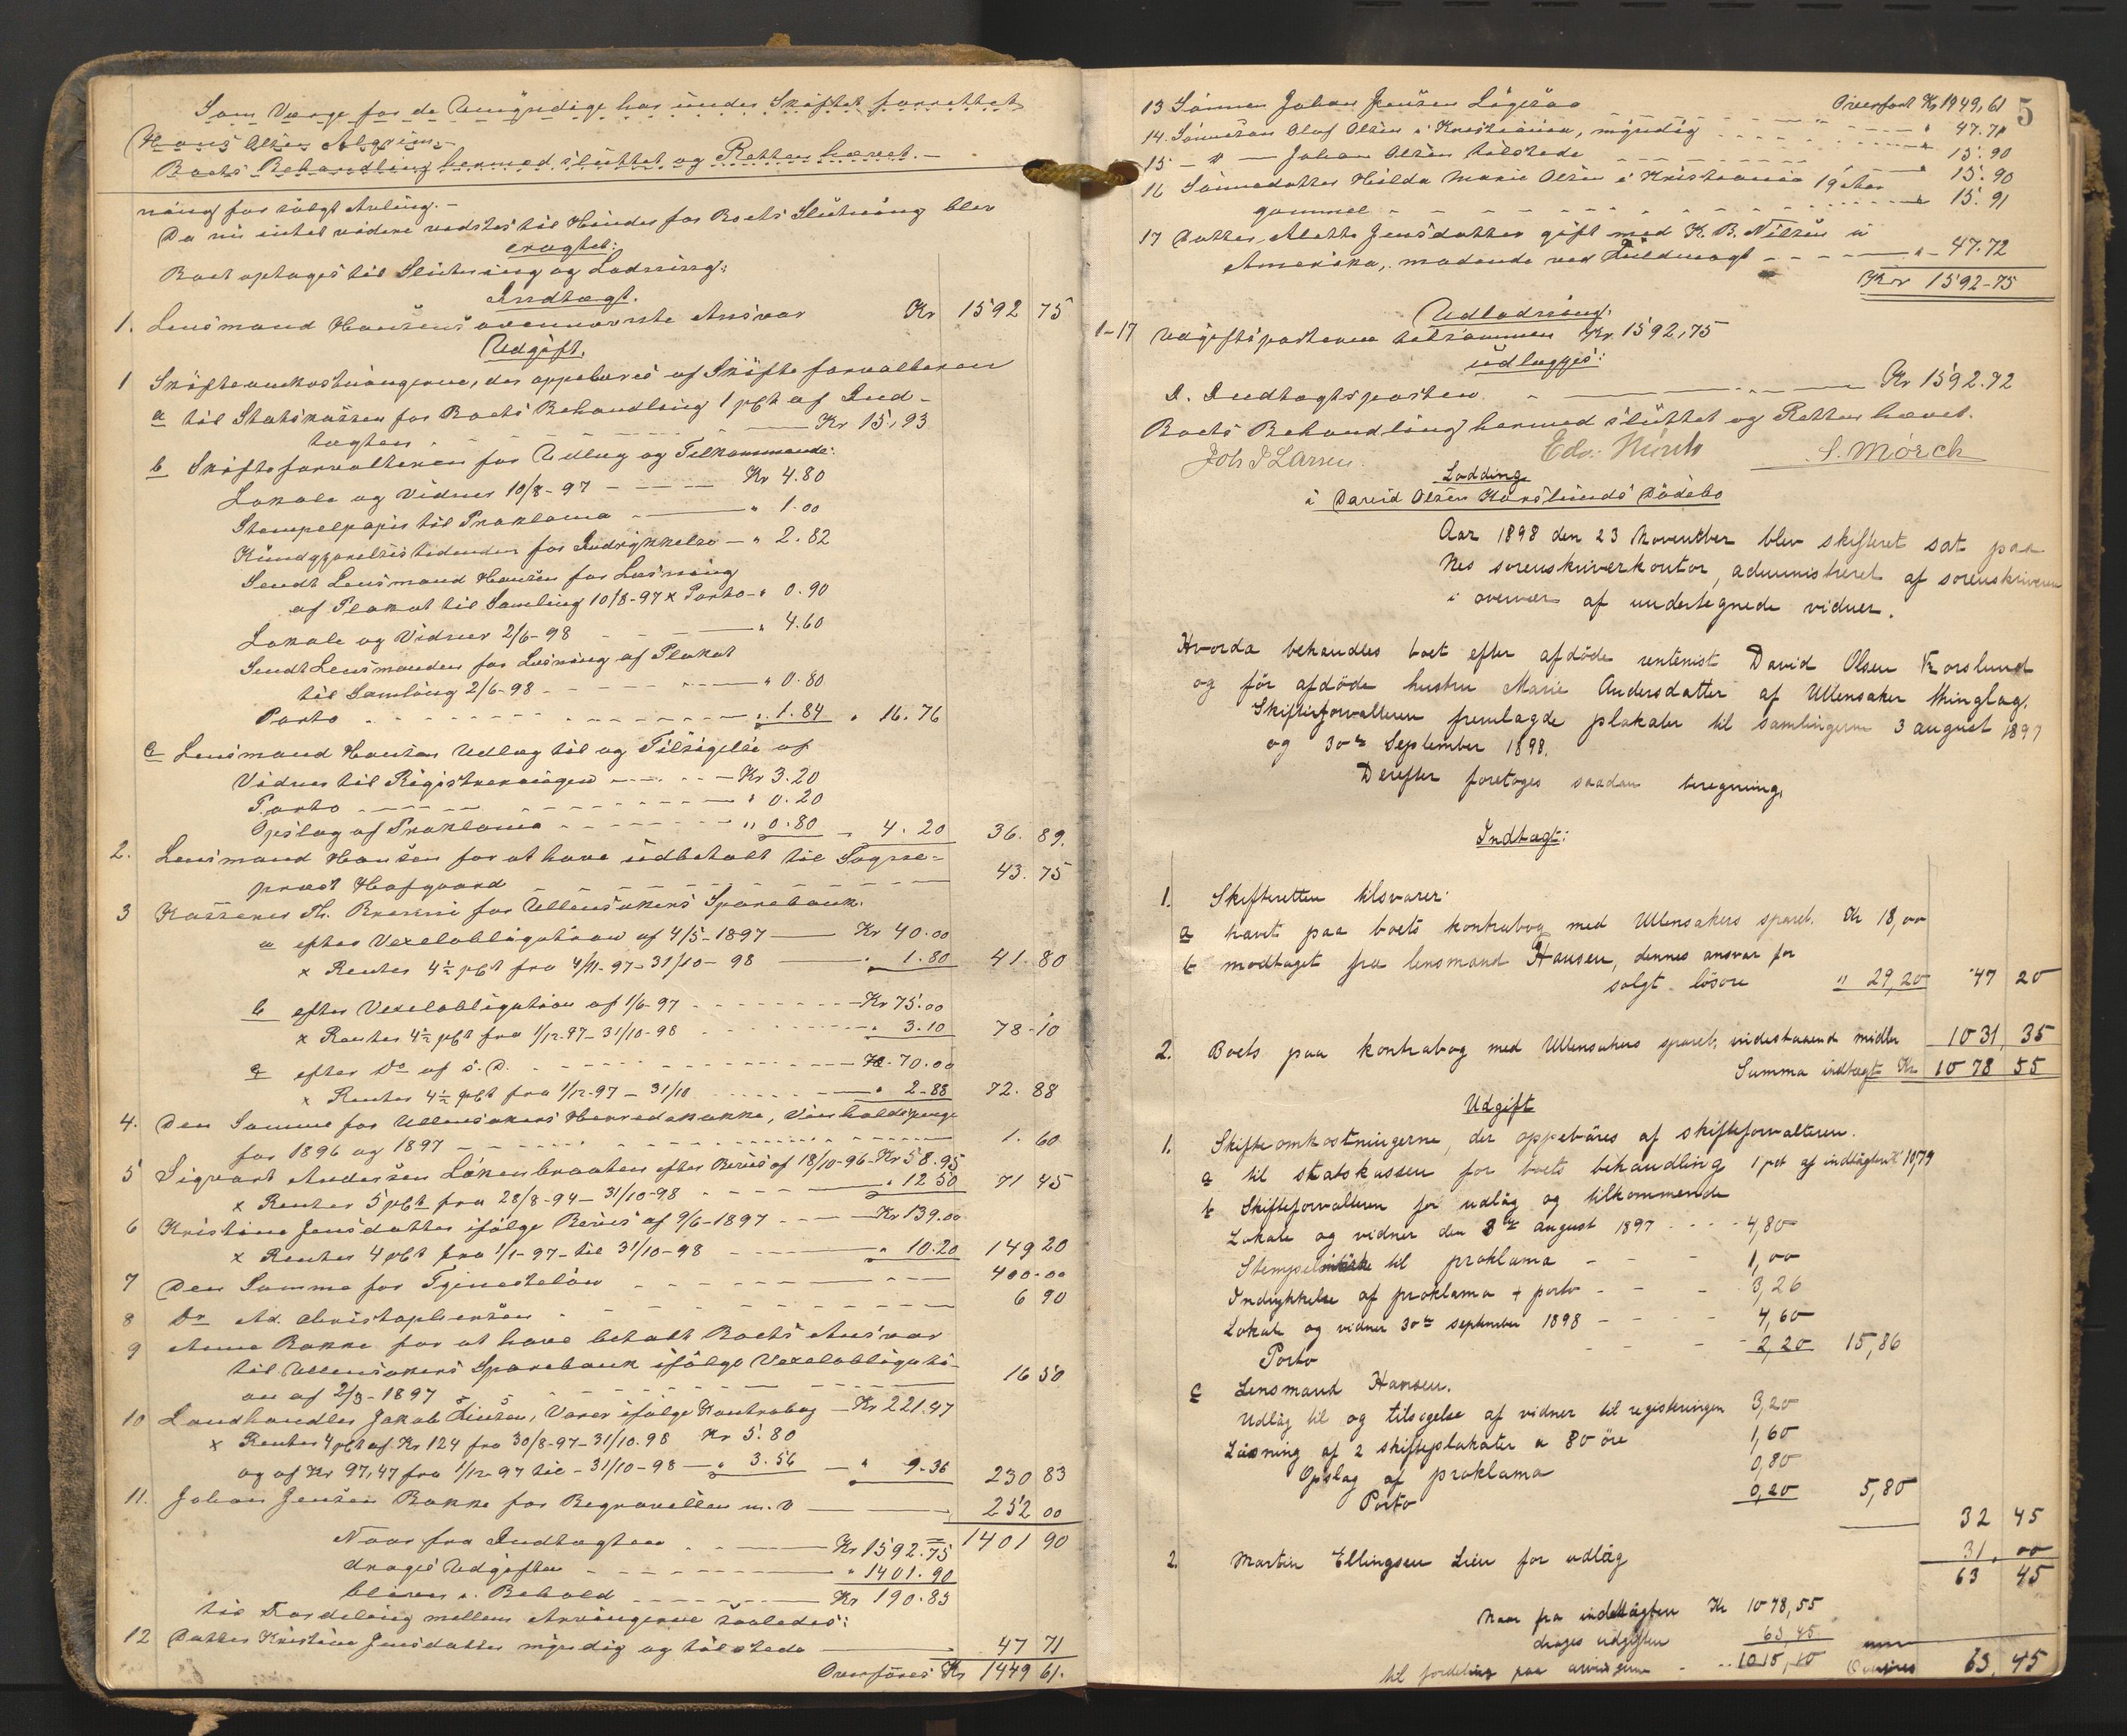 Som Værge for de Umyndige har under Skiftet forrettet
Hans Olsen Algrim.
Boets Behandling hermed sluttet og Retten hævet.
ning for solgt Avling.
Da nu intet videre vidstes til Hinder for Boets Slutning blev
eragtet:
Boet optages til Slutning og Lodning:
Indtægt.
1. Lensmand Hansens ovennævnte Ansvar Kr 1592 75
Udgift.
1 Skifteomkostningerne, der oppebæres af Skifteforvalteren
a til Statskassen for Boets Behandling 1 pCt af Ind-
tægten Kr 15,93
b Skifteforvalteren for Udlæg og Tilkommende:
Lokale og Vidner 10/8-97 Kr 4.80
Stempelpapir til Proklama " 1.00
Kundgjørelsestidenden for Indrykkelse " 2.82
Sendt Lensmand Hansen for Læsning
af Plakat til Samling 10/8-97 x Porto " 0.90
Lokale og Vidner 2/6-98 " 4.60
Sendt Lensmanden for Læsning af Plakat
til Samling 2/6-98 " 0.80
Porto " 1.84 " 16.76
c Lensmand Hansen Udlæg til og Tilsigelse af
Vidner til Registreringen Kr 3.20
Porto " 0.20
Opslag af Proklama " 0.80 4.20 36.89.
2. Lensmand Hansen for at have udbetalt til Sogne-
præst Hofgaard 43.75
3 Kasserer Th. for Ullensakers Sparebank.
a efter Vexelobligation af 4/5-1897 Kr 40.00
x Renter 4½ pCt fra 4/11-97-31/10-98 " 1.80 41.80
b efter Vexelobligation af 1/6-97 Kr 75.00
x Renter 4½ pCt fra 1/12-97-31/10-98 " 3.10 78-10
c efter Do af s. D. Kr. 70.00
x Renter 4½ pCt fra 1/12-97-31/10 " 2-88 72.88
4. Den Samme for Ullensakers Herredskasse,
for 1896 og 1897 1.60
5 Sigvart Andersen Løkenbraaten efter Bevis af 18/10-96 Kr 58.95
x Renter 5 pCt fra 28/8-94-31/10-98 " 12.50 71 45
6 Kristine Jensdatter ifølge Bevis af 9/6-1897 Kr 139.00
x Renter 4 pCt fra 1/1-97-til 31/10-98 " 10.20 149 20
7 Den Samme for Tjenesteløn 400.00
8 Dr Ad. Christophersen 6 90
9 Anne Bakke for at have betalt Boets Ansvar
til Ullensakers Sparebank ifølge Vexelobligati-
on af 2/3-1897 16 50
10 Landhandler Jakob Jensen, Varer ifølge Kontrabog Kr 221.47
x Renter 4 pCt af Kr 124 fra 30/8-97-31/10.98 Kr 5.80
og af Kr 97,47 fra 1/12-97 til-31/10-98 " 3.56 " 9.36 230 83
11. Johan Jensen Bakke for Begravelsen m.v 252 00
Naar fra Indtægten Kr 1592.75 1401 90
drages Udgiften " 1401.90
bliver i Behold Kr 190.85
til Fordeling mellem Arvingerne saaledes:
12 Datter Kristine Jensdatter myndig og tilstede 47 71
Overføres Kr 1449 61.
5
Overført Kr 1949,61
13 Sønnen Johan Jensen " 47.71
14. Sønnesøn Olaf Olsen i Kristiania, myndig " 15.90
15 - " - Johan Olsen tilstede " 15.90
16 Sønnedatter Hilda Marie Olsen i Kristiania 19 Aar
gammel " 15.91
17 Datter Alette Jensdatter gift med K. B. Nilsen i
Amerika, mødende ved Fuldmagt " 47.72
Kr 1592-75
Udlodning:
1-17 Udgiftsposterne tilsammen Kr 1592,75
udlægges:
I. Indtægtsposten Kr 1592.72
Boets Behandling hermed sluttet og Retten hævet.
Joh J Larsen. S. Mörch
Lodding
i David Olsen Korslunds Dødsbo
Aar 1898 den 23 November blev skifteret sat paa
Nes sorenskriverkontor, administreret af sorenskriveren
i overvær af undertegnede vidner.
Hvorda behandles boet efter afdøde rentenist David Olsen Korslund
og før afdøde hustru Marie Andersdatter af Ullensaker thinglag.
Skifteforvalteren fremlagde plakater til samlingerne 3 august 1897
og 30te September 1898.
Derefter foretoges saadan beregning.
Indtægt:
1. Skifteretten tilsvarer:
a hævet paa boets kontrabog med Ullensakers spareb. Kr 18,00
b modtaget fra lensmand Hansen, dennes ansvar for
solgt løsøre " 29,20 47 20
2. Boets paa kontrabog med Ullensakers spareb. indestaaende midler 1031,35
Summa indtægt Kr 1078 55
Udgift
1. Skifteomkostningerne, der oppebæres af skifteforvalteren.
a til statskassen for boets behandling 1 pct af indtægten Kr 10,79
b Skifteforvalteren for udlæg og tilkommende
Lokale og vidner den 3de august 1897 4,80
til proklama 1,00
Indrykkelse af proklama + porto 3,26
Lokale og vidner 30te september 1898 4,60
Porto 2,20 15,86
c Lensmand Hansen.
Udlæg til og tilsigelse af vidner til registreringen 3,20
Læsning af 2 skifteplakater a 80 øre 1,60
Opslag af proklama 0,80
Porto 0,20 5,80
32 45
2. Martin Ellingsen Lien for udlæg 31,00
63 45
Naar fra indtægten Kr 1078,55
drages udgiften 63,45
til fordeling paa arvingerne 1015,10 Overføres 63,45